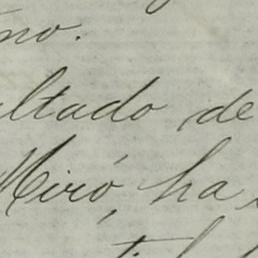 no.
ultado de
Miró, ha